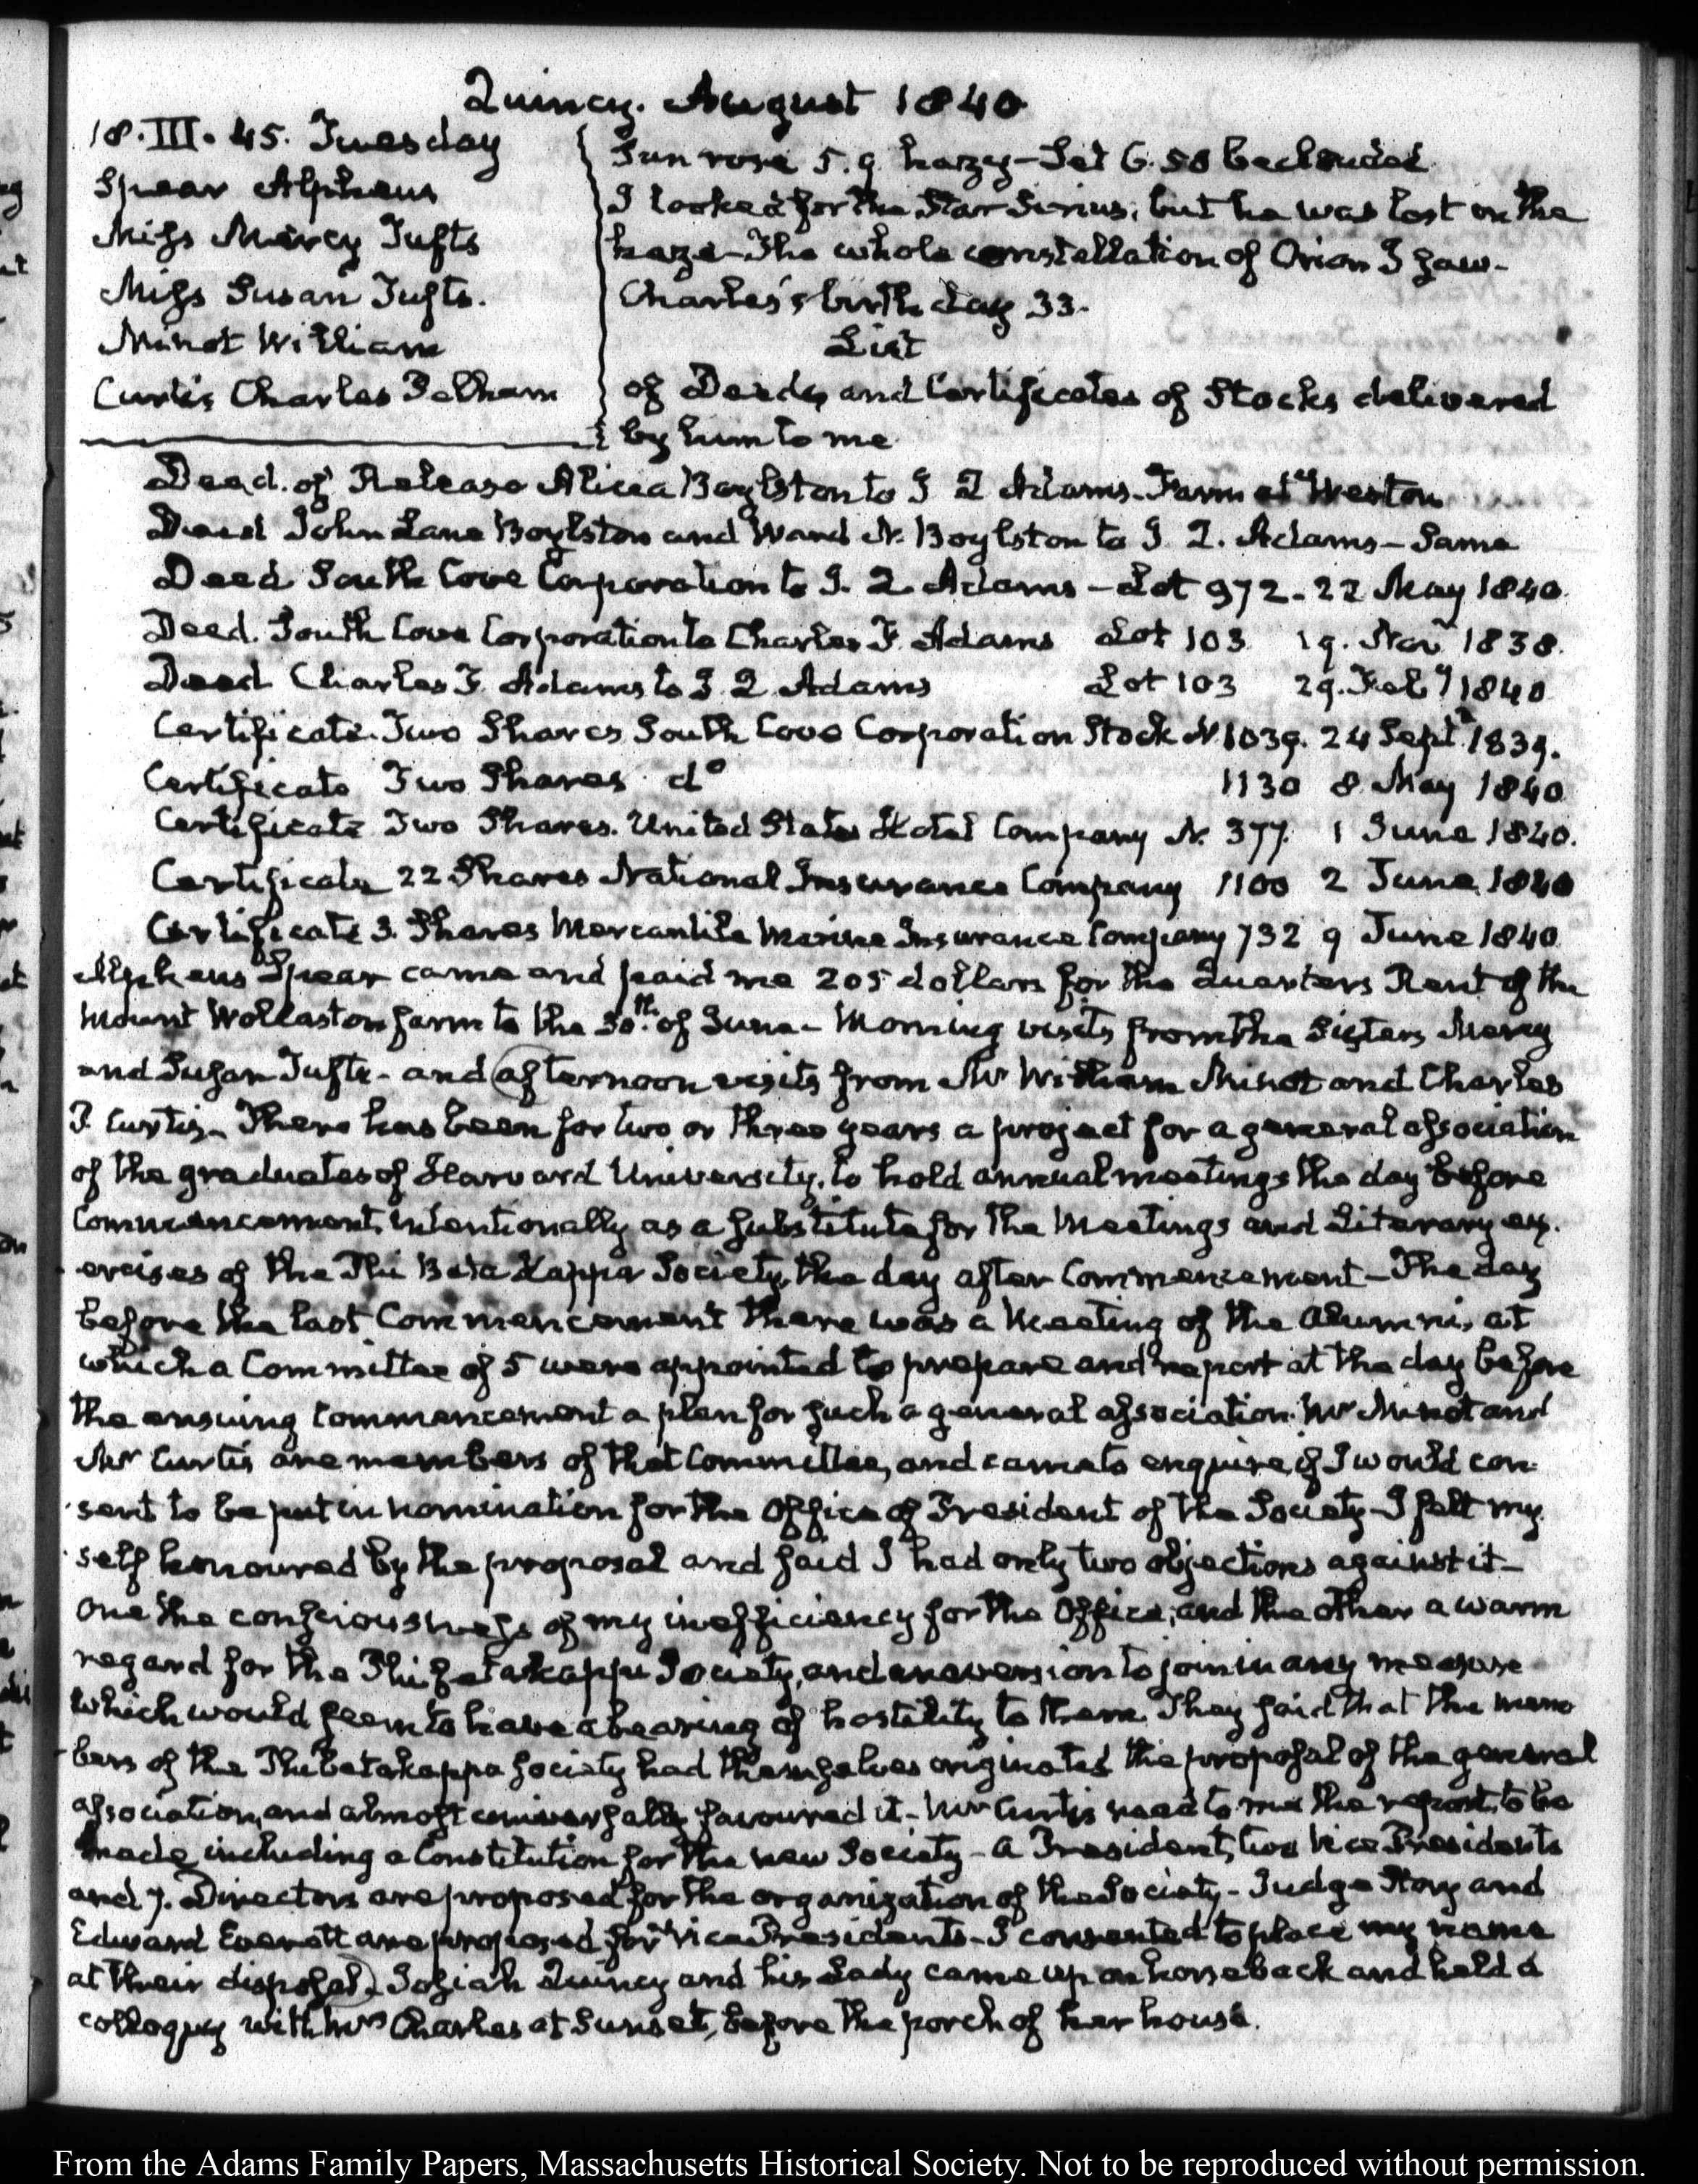 Quincy. August 1840
18. III. 45. Tuesday
Spear Alpheus
Miss Mercy Tufts
Miss Susan Tufts.
Minot William
Curtis Charles Pelham
Sun rose 5. 9 hazy—Set 6. 50 beclouded
I looked for the Star Sirius; but he was lost in the
haze—The whole constellation of Orion I saw—
Charles's birth day 33.
List
of Deeds and Certificates of Stocks delivered
by him to me
Deed of Release Alicia Boylston to J Q Adams. Farm at Weston
Deed John Lane Boylston and Ward N. Boylston to J. Q. Adams—Same
Deed South Cove Corporation to J. Q. Adams—Lot 972. 22 May 1840.
Deed. South Cove Corporation to Charles F. Adams Lot 103 19. Nov 1838.
Deed Charles F. Adams to J. Q. Adams Lot 103 29. Feby 1840
Certificate. Two Shares South Cove Corporation Stock N 1039. 24 Sept 1839.
Certificate Two Shares do 1130 8. May 1840
Certificate Two Shares. United States Hotel Company N. 377. 1 June 1840.
Certificate 22 Shares National Insurance Company 1100 2 June 1840
Certificate 3. Shares Mercantile Marine Insurance Company 732 9 June 1840
Alpheus Spear came and paid me 205 dollars for the Quarters Rent of the
Mount Wollaston farm to the 30th. of June—Morning visits from the Sisters Mercy
and Susan Tufts—and afternoon visits from Mr William Minot and Charles
P. Curtis—There has been for two or three years a project for a general association
of the graduates of Harvard University, to hold annual meetings the day before
Commencement, intentionally as a substitute for the Meetings and Literary ex-
ercises of the Phi Beta Kappa Society, the day after Commencement—The day
before the last Commencement there was a Meeting of the Alumni, at
which a Committee of 5 were appointed to prepare and report at the day before
the ensuing Commencement a plan for such a general association. Mr Minot and
Mr Curtis are members of that Committee, and came to enquire, if I would con-
sent to be put in nomination for the Office of President of the Society—I felt my
self honoured by the proposal and said I had only two objections against it—
One the consciousness of my inefficiency for the Office; and the other a warm
regard for the Phi Betakappa Society, and an aversion to join in any measure
which would seem to have a bearing of hostility to them. They said that the mem
bers of the Phi betakappa Society had themselves originated the proposal of the general
association, and almost universally favoured it—Mr Curtis read to me the report, to be
made, including a Constitution for the new Society—a President, two Vice Presidents
and 7. Directors are proposed for the organization of the Society—Judge Story and
Edward Everett are proposed for Vice Presidents—I consented to place my name
at their disposal. Josiah Quincy and his Lady came up on horseback and held a
colloquy with Mrs Charles at Sunset, before the porch of her house.
From the Adams Family Papers, Massachusetts Historical Society. Not to be reproduced without permission.